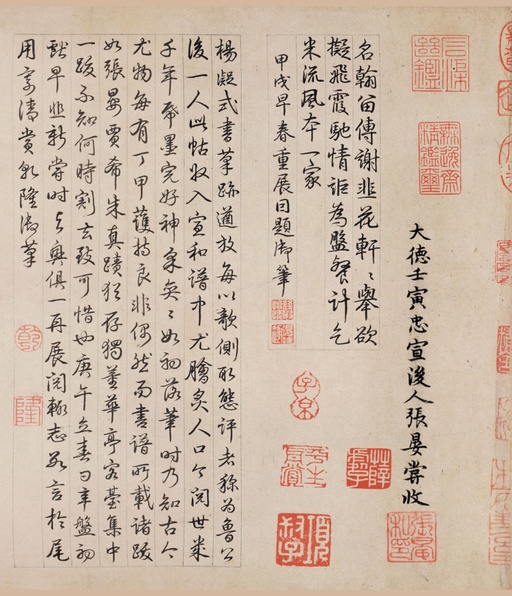 大德壬寅忠宣後人張晏嘗收
名翰留傳謝韭花軒〻舉欲
擬飛霞馳情詎為盤餐計乞
米流風本一家
甲戌早春重展因題御筆
楊凝式書筆跡遒放每以欹側取態評者稱為魯公
後一人此帖收入宣和譜中尤膾炙人口今閱世幾
千年帋墨完好神采奕〻如初落筆時乃知古今
尤物每有丁甲護持良非偶然而書譜所載諸跋
如張晏賈希朱真蹟猶存獨董華亭容臺集中
一跋不知何時割去致可惜也庚午立春日辛盤初
獻早韭新嘗時與興俱一再展閱輒志數言於尾
用寄清賞乾隆御筆
乾
隆